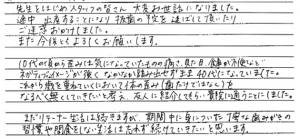 先生をはじめスタッフの皆さん 大変お世話になりました。
途中 出産することになり 抜歯の予定を遅ばして頂いたり
ご迷惑おかけしました。
また今後ともよろしくお願いします。
10代の頃から歯みは気になっていたものの痛さ、見た目、食事が不便など
ネガティブイメージが強く なかなか踏み出せずまま 40代になっていました。
これから歳を重ねていくにおいて1本の歯み(歯だけではなく)も
なるべく無くしていきたいと考え、友人に紹介してもらい貴院に通うことにしました。
まだリテーナー生活は続きますが、期間中に身についた丁寧な歯みがきの
習慣や間食をしない生活はこれからも続けていきたいと思います。